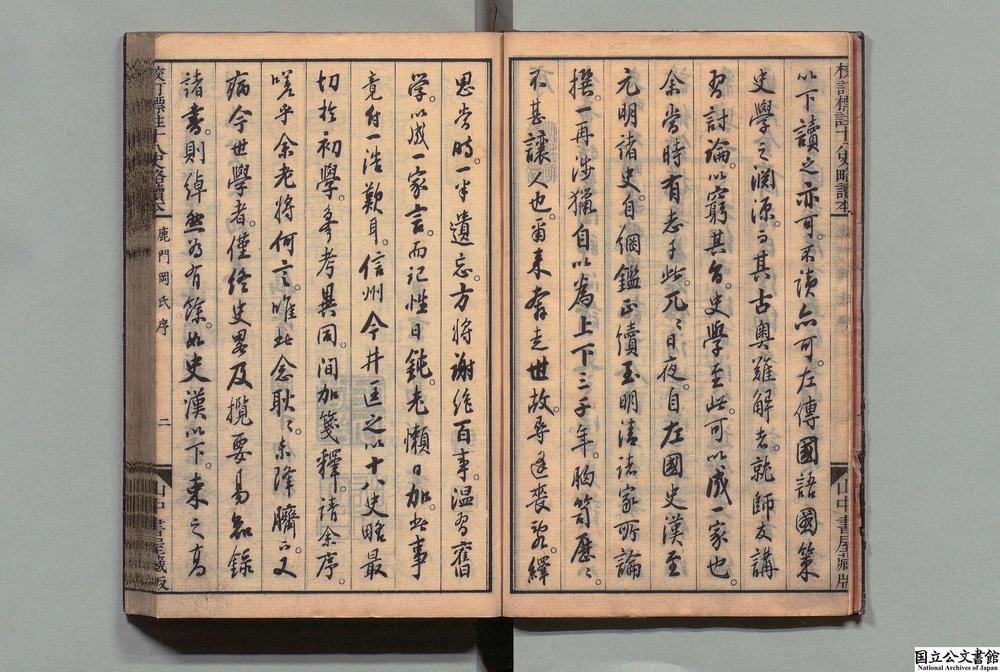 校訂標註十八史略讀本
山中書屋藏版
以下讀之亦可。不讀亦可。左傳國語國策
史學之淵源。而其古奧難解者。就師友講
習討論。以窮其旨。史學至此。可以成一家也。
余當時有志于此。兀〻日夜。自左國史漢至
元明諸史。自綱鑑正續至明清諸家所論
撰。一再涉獵。自以為上下三千年。胸笥歷〻
不甚讓人也。爾來奔走世故。尋逢喪亂。繹
思當時。一半遺忘。方將謝絕百事。溫習舊
學。以成一家言。而記性日鈍。老懶日加。此事
竟付一浩歎耳。信州今井匡之以十八史略最
切於初學。多考異同。間加箋釋。請余序。
嗟乎余老將何言。唯此念耿〻。未降而又
病今世學者。僅終史畧及攬要易知錄
諸書。則綽然為有餘。如史漢以下。束之高
校訂標註十八史略讀本
鹿門岡氏序
二
山中書屋藏版
国立公文書館
National Archives of Japan